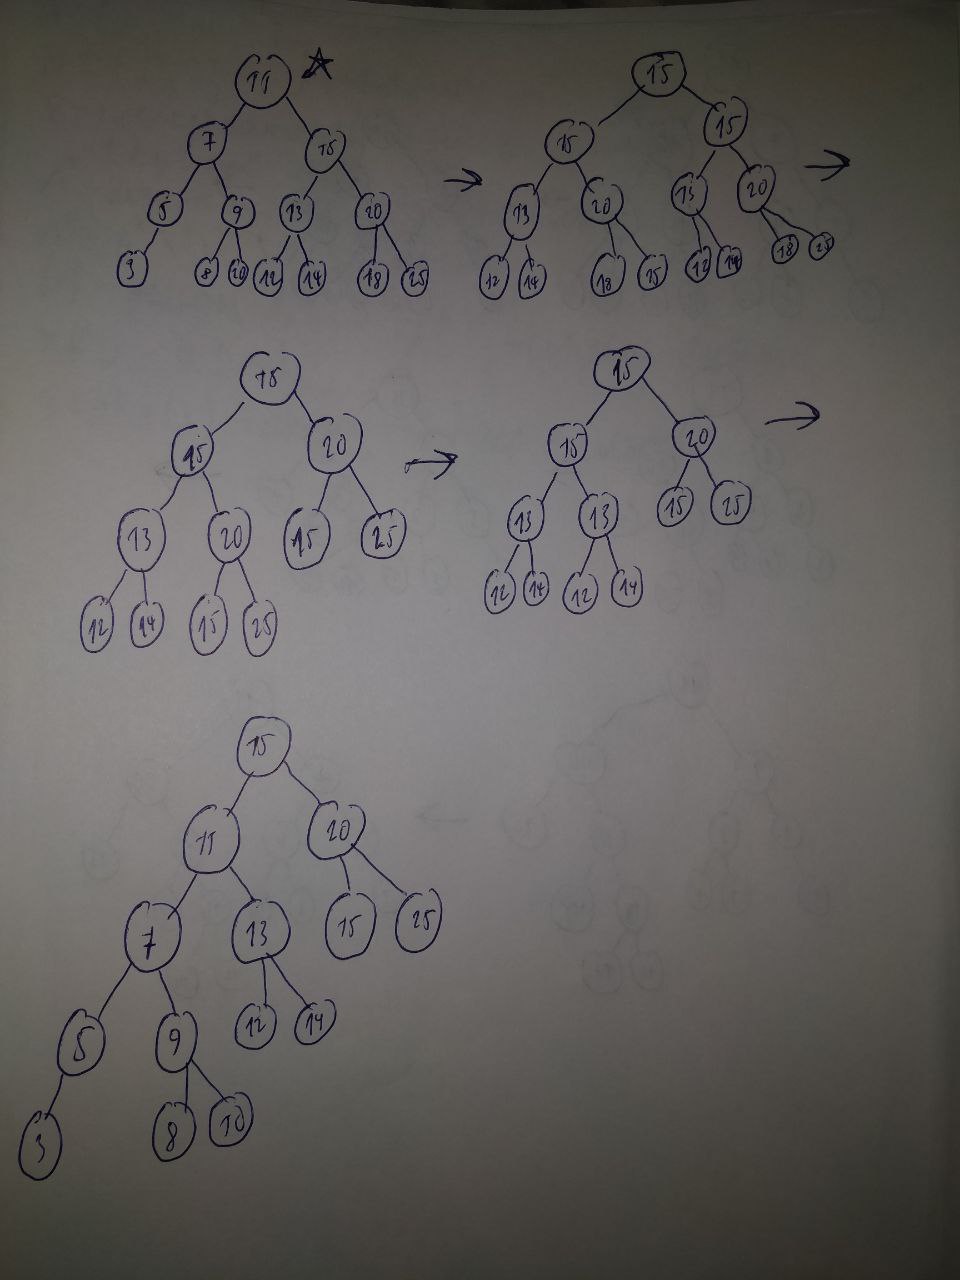 11 ☆
7 15
5 9 13 20
3 8 10 12 14 18 25
→
15
15 15
13 20 13 20
12 14 18 25 12 14 18 25
→
15
15 20
13 20 15 25
12 14 15 25
→
15
15 20
13 13 15 25
12 14 12 14
→
15
11 20
7 13 15 25
5 9 12 14
3 8 10